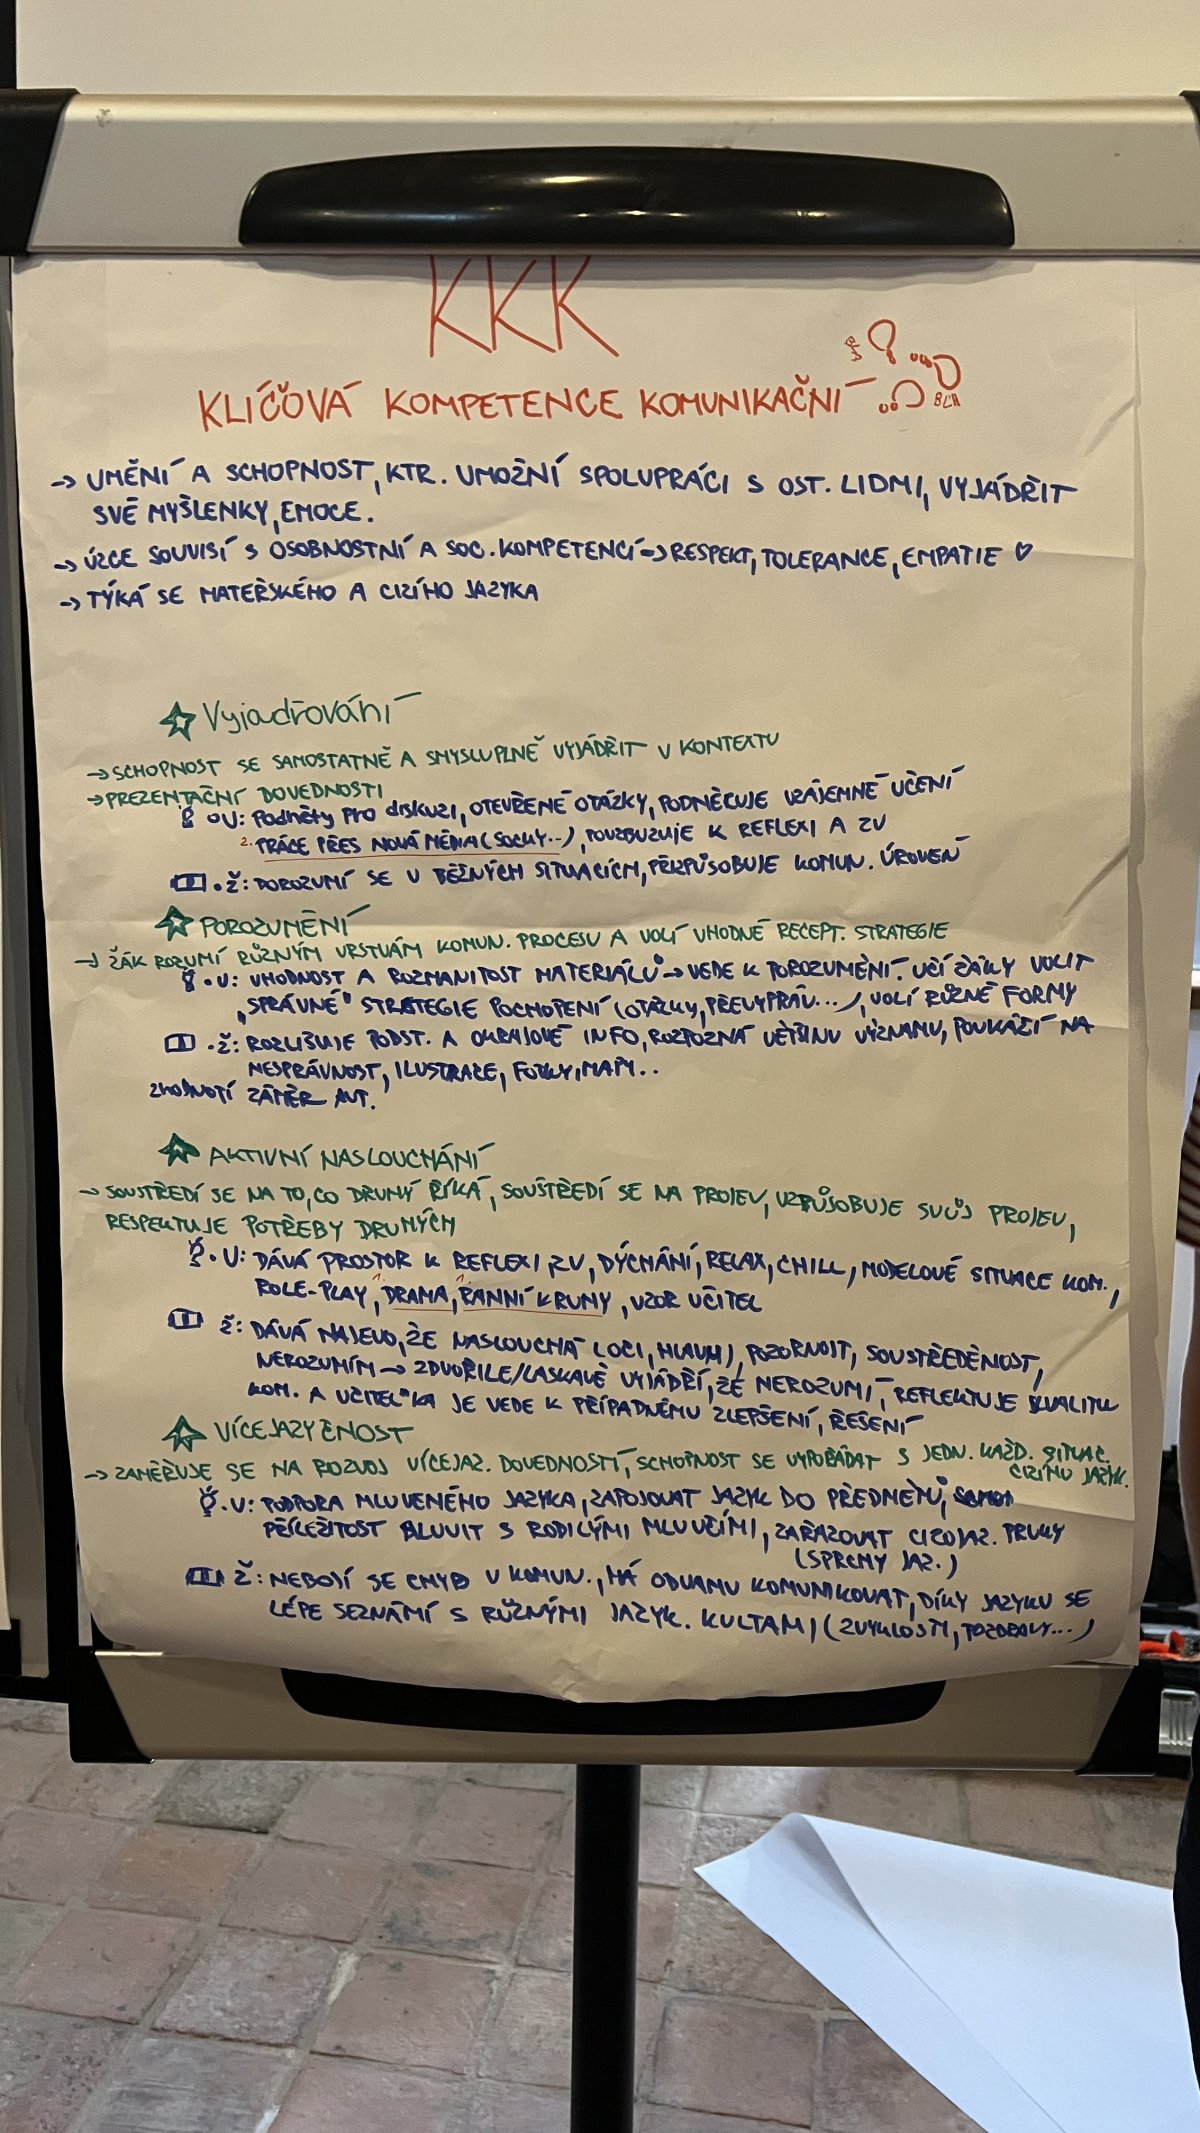 KKK
KLÍČOVÁ KOMPETENCE KOMUNIKAČNÍ
BLA
→ UMĚNÍ A SCHOPNOST, KTR. UMOŽNÍ SPOLUPRÁCI S OST. LIDMI, VYJÁDŘIT
SVÉ MYŠLENKY, EMOCE.
→ ÚZCE SOUVISÍ S OSOBNOSTNÍ A SOC. KOMPETENCÍ → RESPEKT, TOLERANCE, EMPATIE ♡
→ TÝKÁ SE MATEŘSKÉHO A CIZÍHO JAZYKA
Vyjadřování
→ SCHOPNOST SE SAMOSTATNĚ A SMYSLUPLNĚ VYJÁDŘIT V KONTEXTU
→ PREZENTAČNÍ DOVEDNOSTI
U: Podněty pro diskuzi, OTEVŘENÉ OTÁZKY, PODNĚCUJE VZÁJEMNÉ UČENÍ
2. PRÁCE PŘES NOVÁ MÉDIA (SOCKY...), POVZBUZUJE K REFLEXI A ZV
• Ž: DOROZUMÍ SE V BĚŽNÝCH SITUACÍCH, PŘIZPŮSOBUJE KOMUN. ÚROVEŇ
POROZUMĚNÍ
→ ŽÁK ROZUMÍ RŮZNÝM VRSTVÁM KOMUN. PROCESU A VOLÍ VHODNÉ RECEPT. STRATEGIE
• U: VHODNOST A ROZMANITOST MATERIÁLŮ → VEDE K POROZUMĚNÍ. UČÍ ŽÁKY VOLIT
„SPRÁVNÉ" STRATEGIE POCHOPENÍ (OTÁZKY, PŘEVYPRÁV...), VOLÍ RŮZNÉ FORMY
• Ž: ROZLIŠUJE PODST. A OKRAJOVÉ INFO, ROZPOZNÁ VĚTŠINU VÝZNAMU, POUKÁŽÍ NA
NESPRÁVNOST, ILUSTRACE, FOTKY, MAPY..
ZHODNOTÍ ZÁMĚR AUT.
AKTIVNÍ NASLOUCHÁNÍ
→ SOUSTŘEDÍ SE NA TO, CO DRUHÝ ŘÍKÁ, SOUSTŘEDÍ SE NA PROJEV, UZPŮSOBUJE SVŮJ PROJEV,
RESPEKTUJE POTŘEBY DRUHÝCH
• U: DÁVÁ PROSTOR K REFLEXI, ZV, DÝCHÁNÍ, RELAX, CHILL, MODELOVÉ SITUACE KOM.,
ROLE-PLAY, DRAMA, RANNÍ KRUHY, VZOR UČITEL
Ž: DÁVÁ NAJEVO, ŽE NASLOUCHÁ (OČI, HLAVA), POZORNOST, SOUSTŘEDĚNOST,
NEROZUMÍM → ZDVOŘILE/LASKAVĚ VYJÁDŘÍ, ŽE NEROZUMÍ, REFLEKTUJE KVALITU
KOM. A UČITEL*KA JE VEDE K PŘÍPADNÉMU ZLEPŠENÍ, ŘEŠENÍ
VÍCEJAZYČNOST
→ ZAMĚŘUJE SE NA ROZVOJ VÍCEJAZ. DOVEDNOSTÍ, SCHOPNOST SE VYPOŘÁDAT S JEDN. KAŽD. SITUAC.
CIZÍHO JAZYK.
• U: PODPORA MLUVENÉHO JAZYKA, ZAPOJOVAT JAZYK DO PŘEDMĚTŮ,
PŘÍLEŽITOST MLUVIT S RODILÝMI MLUVČÍMI, ZAŘAZOVAT CIZOJAZ. PRVKY
(SPRCHY JAZ.)
Ž: NEBOJÍ SE CHYB V KOMUN., MÁ ODVAHU KOMUNIKOVAT, DÍKY JAZYKU SE
LÉPE SEZNÁMÍ S RŮZNÝMI JAZYK. KULTAMI (ZVYKLOSTI, POZDRAVY...)